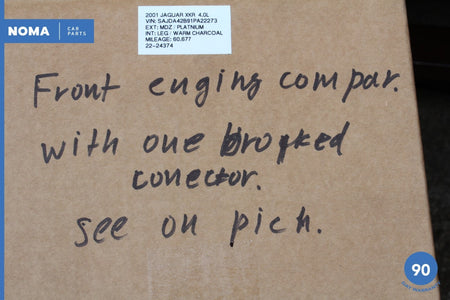 NOMA CAR
PARTS
2001 JAGUAR XKR 4.0L
VIN: SAJDA42B91PA22273
EXT: MDZ / PLATNIUM
INT: LEG / WARM CHARCOAL
MILEAGE: 60,677
22-24374
Front enging compar.
with one brocked
conector.
see on pich.
90
DAY WARRANTY